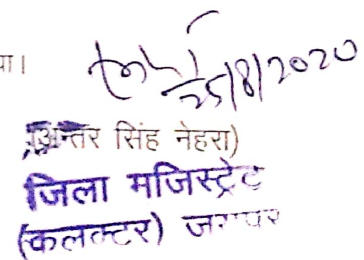 या।
25/8/2020
(अन्तर सिंह नेहरा)
जिला मजिस्ट्रेट
(कलक्टर) जयपुर